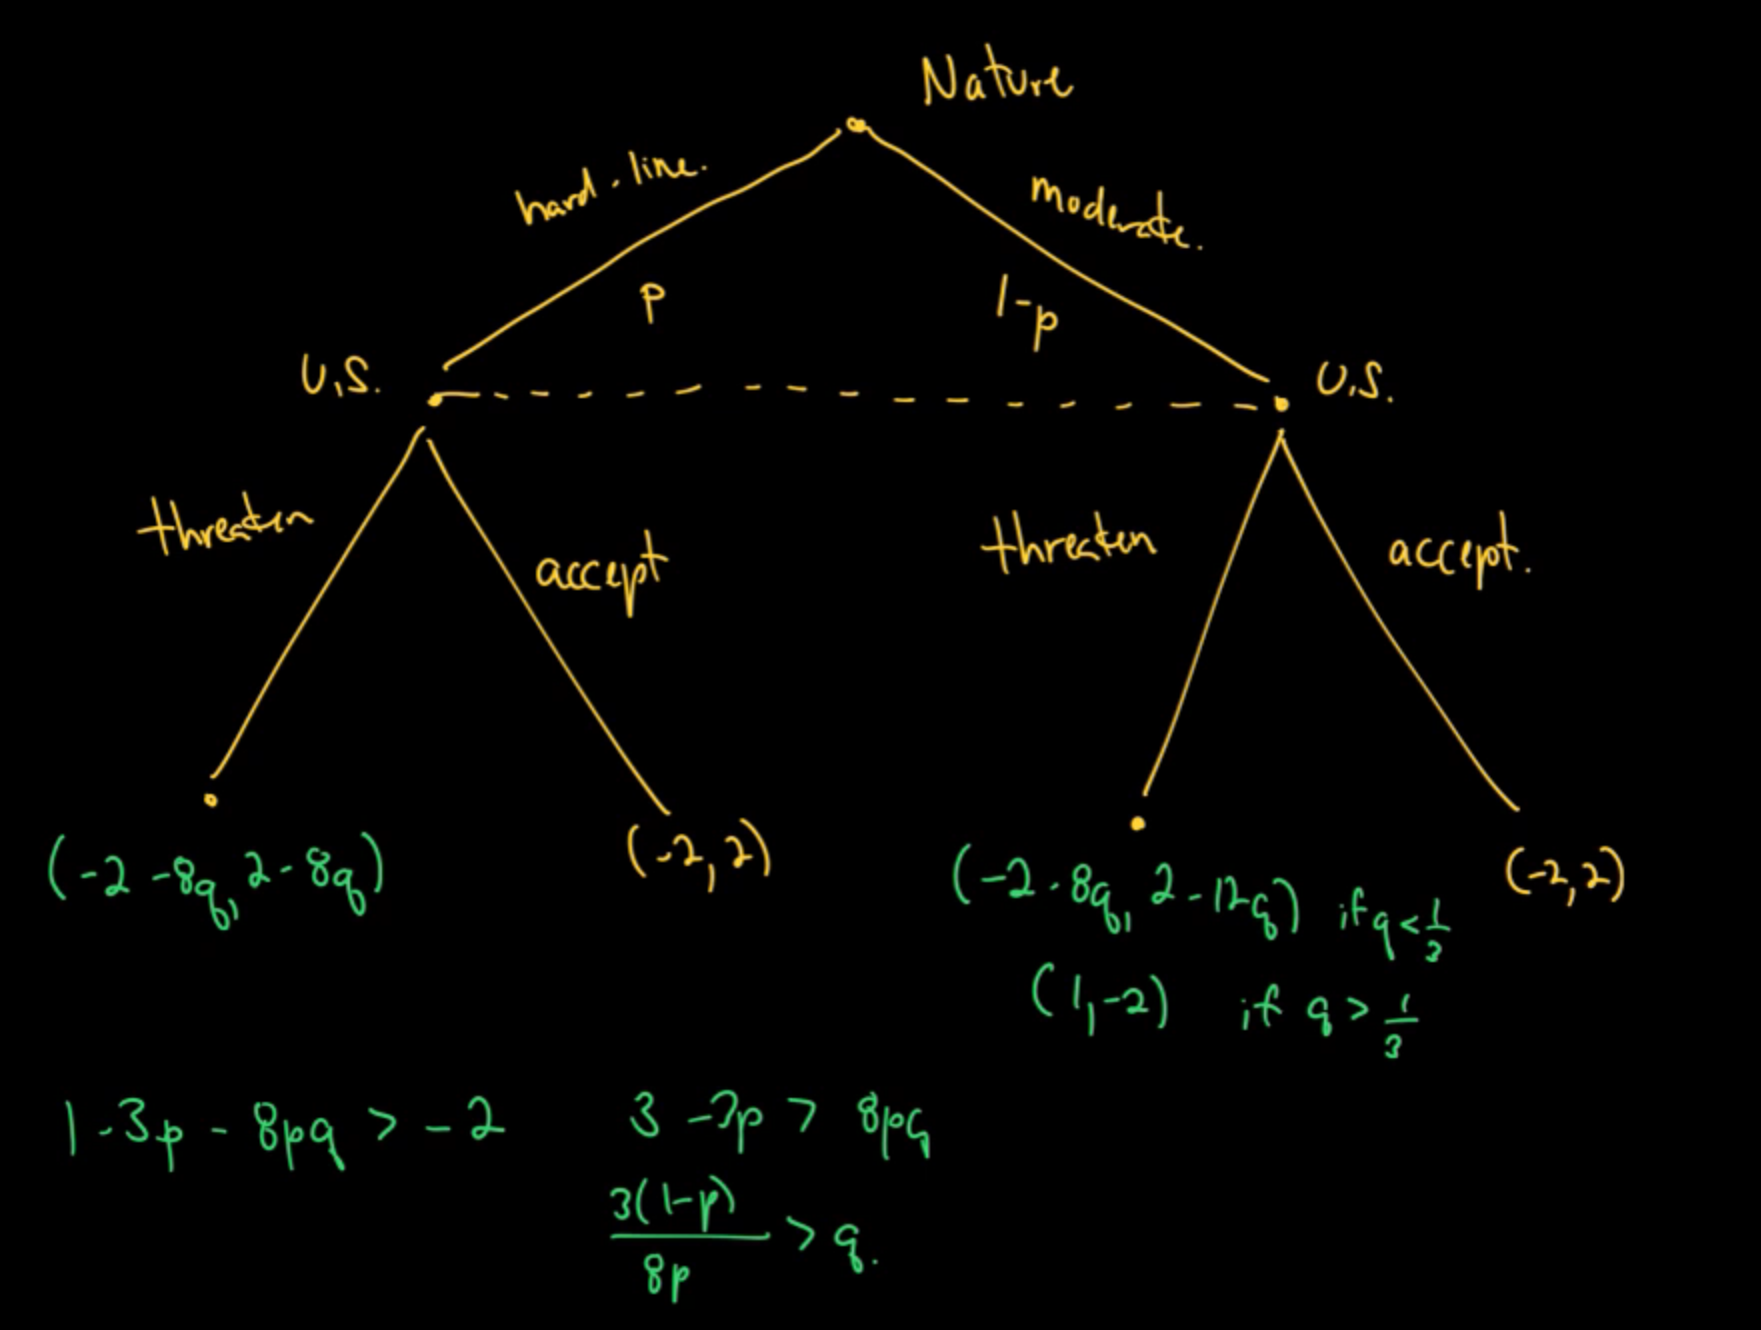 Nature
hard-line.
moderate.
p
1-p
U.S.
U.S.
threaten
accept
threaten
accept.
(-2-8q, 2-8q)
(-2, 2)
(-2-8q, 2-12q) if q < 1/3
(-2, 2)
(1, -2) if q > 1/3
1-3p-8pq > -2
3-3p > 8pq
3(1-p)/8p > q.